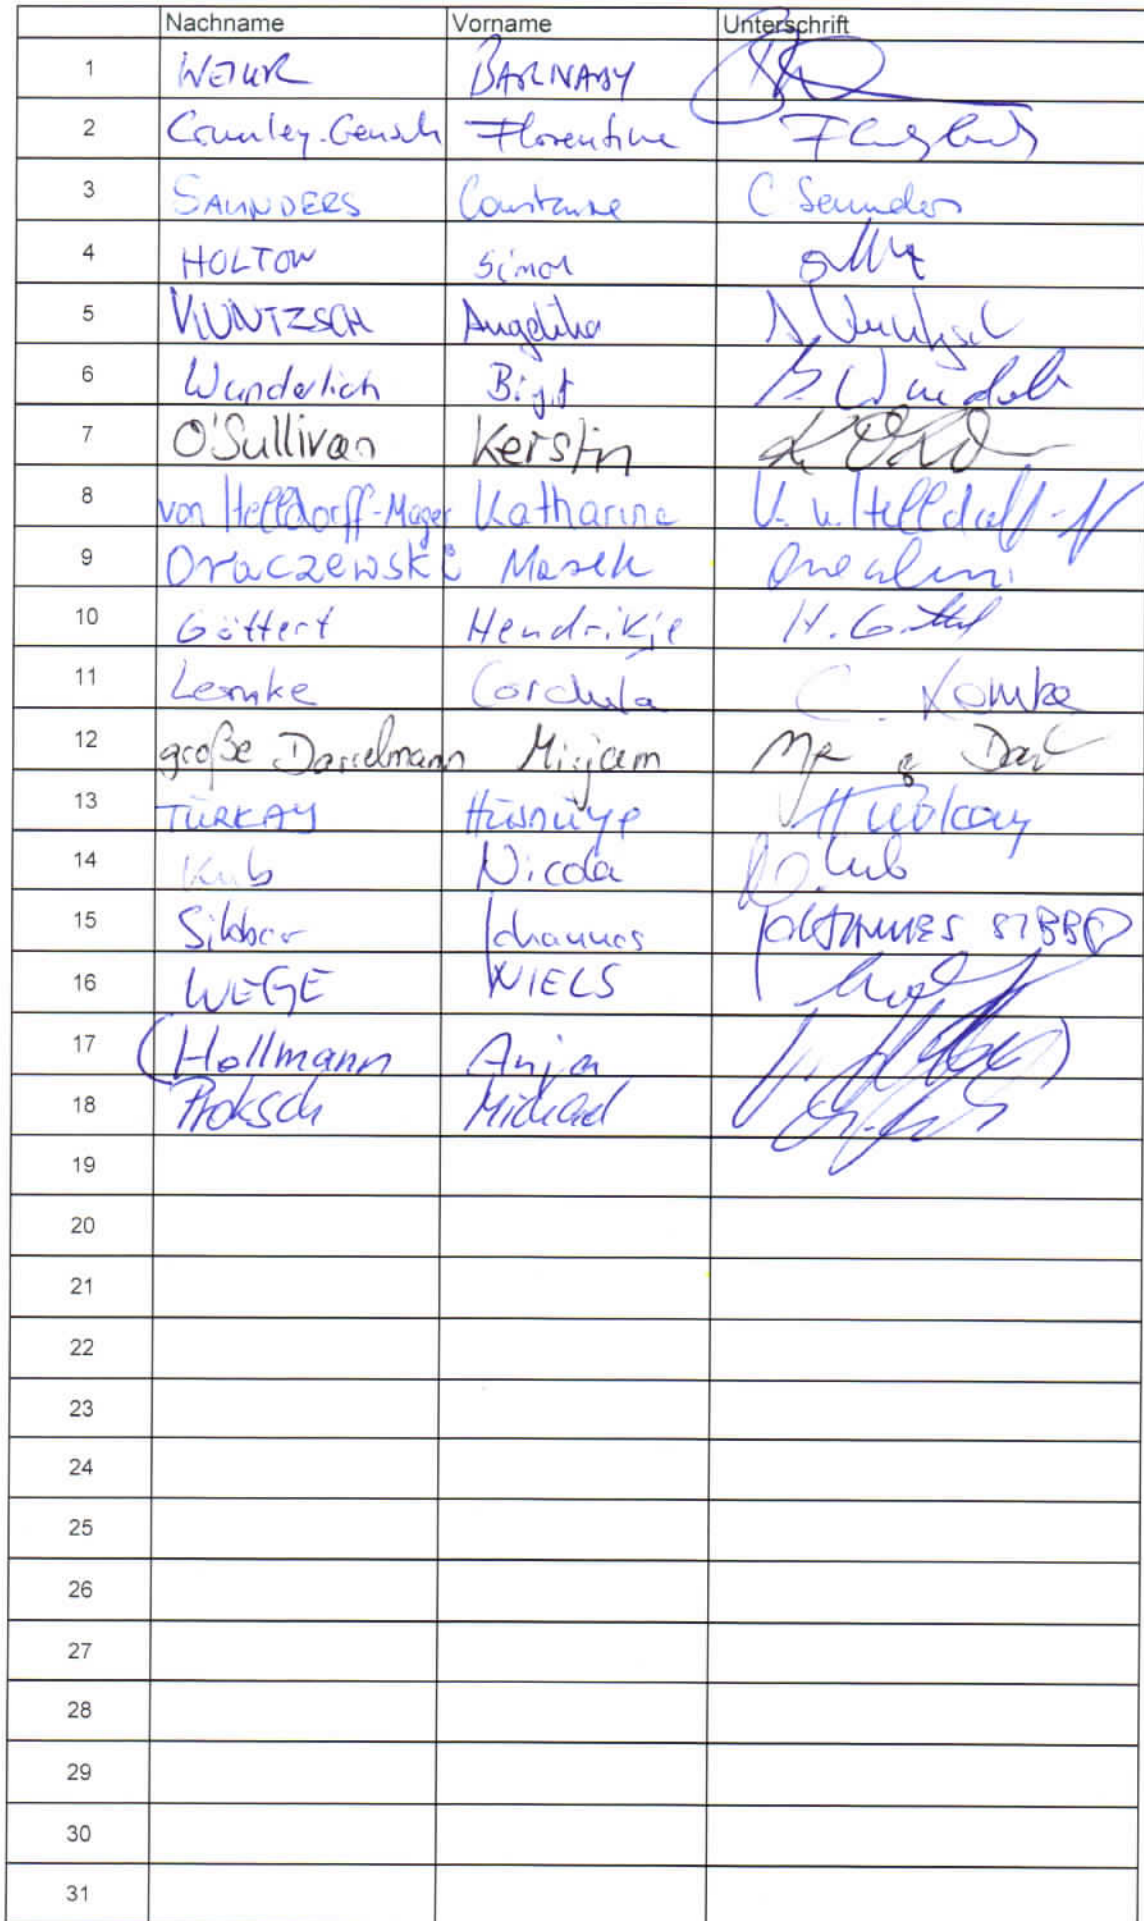 Nachname Vorname Unterschrift
1 BARNABY
2 Florentine
3 SAUNDERS Constanze C Saunders
4 HOLTOW Simon
5 KUNTZSCH Angelika A. Kuntzsch
6 Wunderlich Birgit B. Wunderlich
7 O'Sullivan Kerstin
8 von Helldorff-Mager Katharina K. v. Helldorff-M
9 Draczewski Marek
10 Göttert Hendrikje H. Göttert
11 Lemke Cordula C. Lemke
12 große Darrelmann Mirjam
13 TÜRKAY Hüsnüye H Türkay
14 Kub Nicola N. Kub
15 Sibber Johannes JOHANNES SIBBER
16 WEGE NIELS
17 (Hollmann Anja )
18 Proksch Michael
19
20
21
22
23
24
25
26
27
28
29
30
31